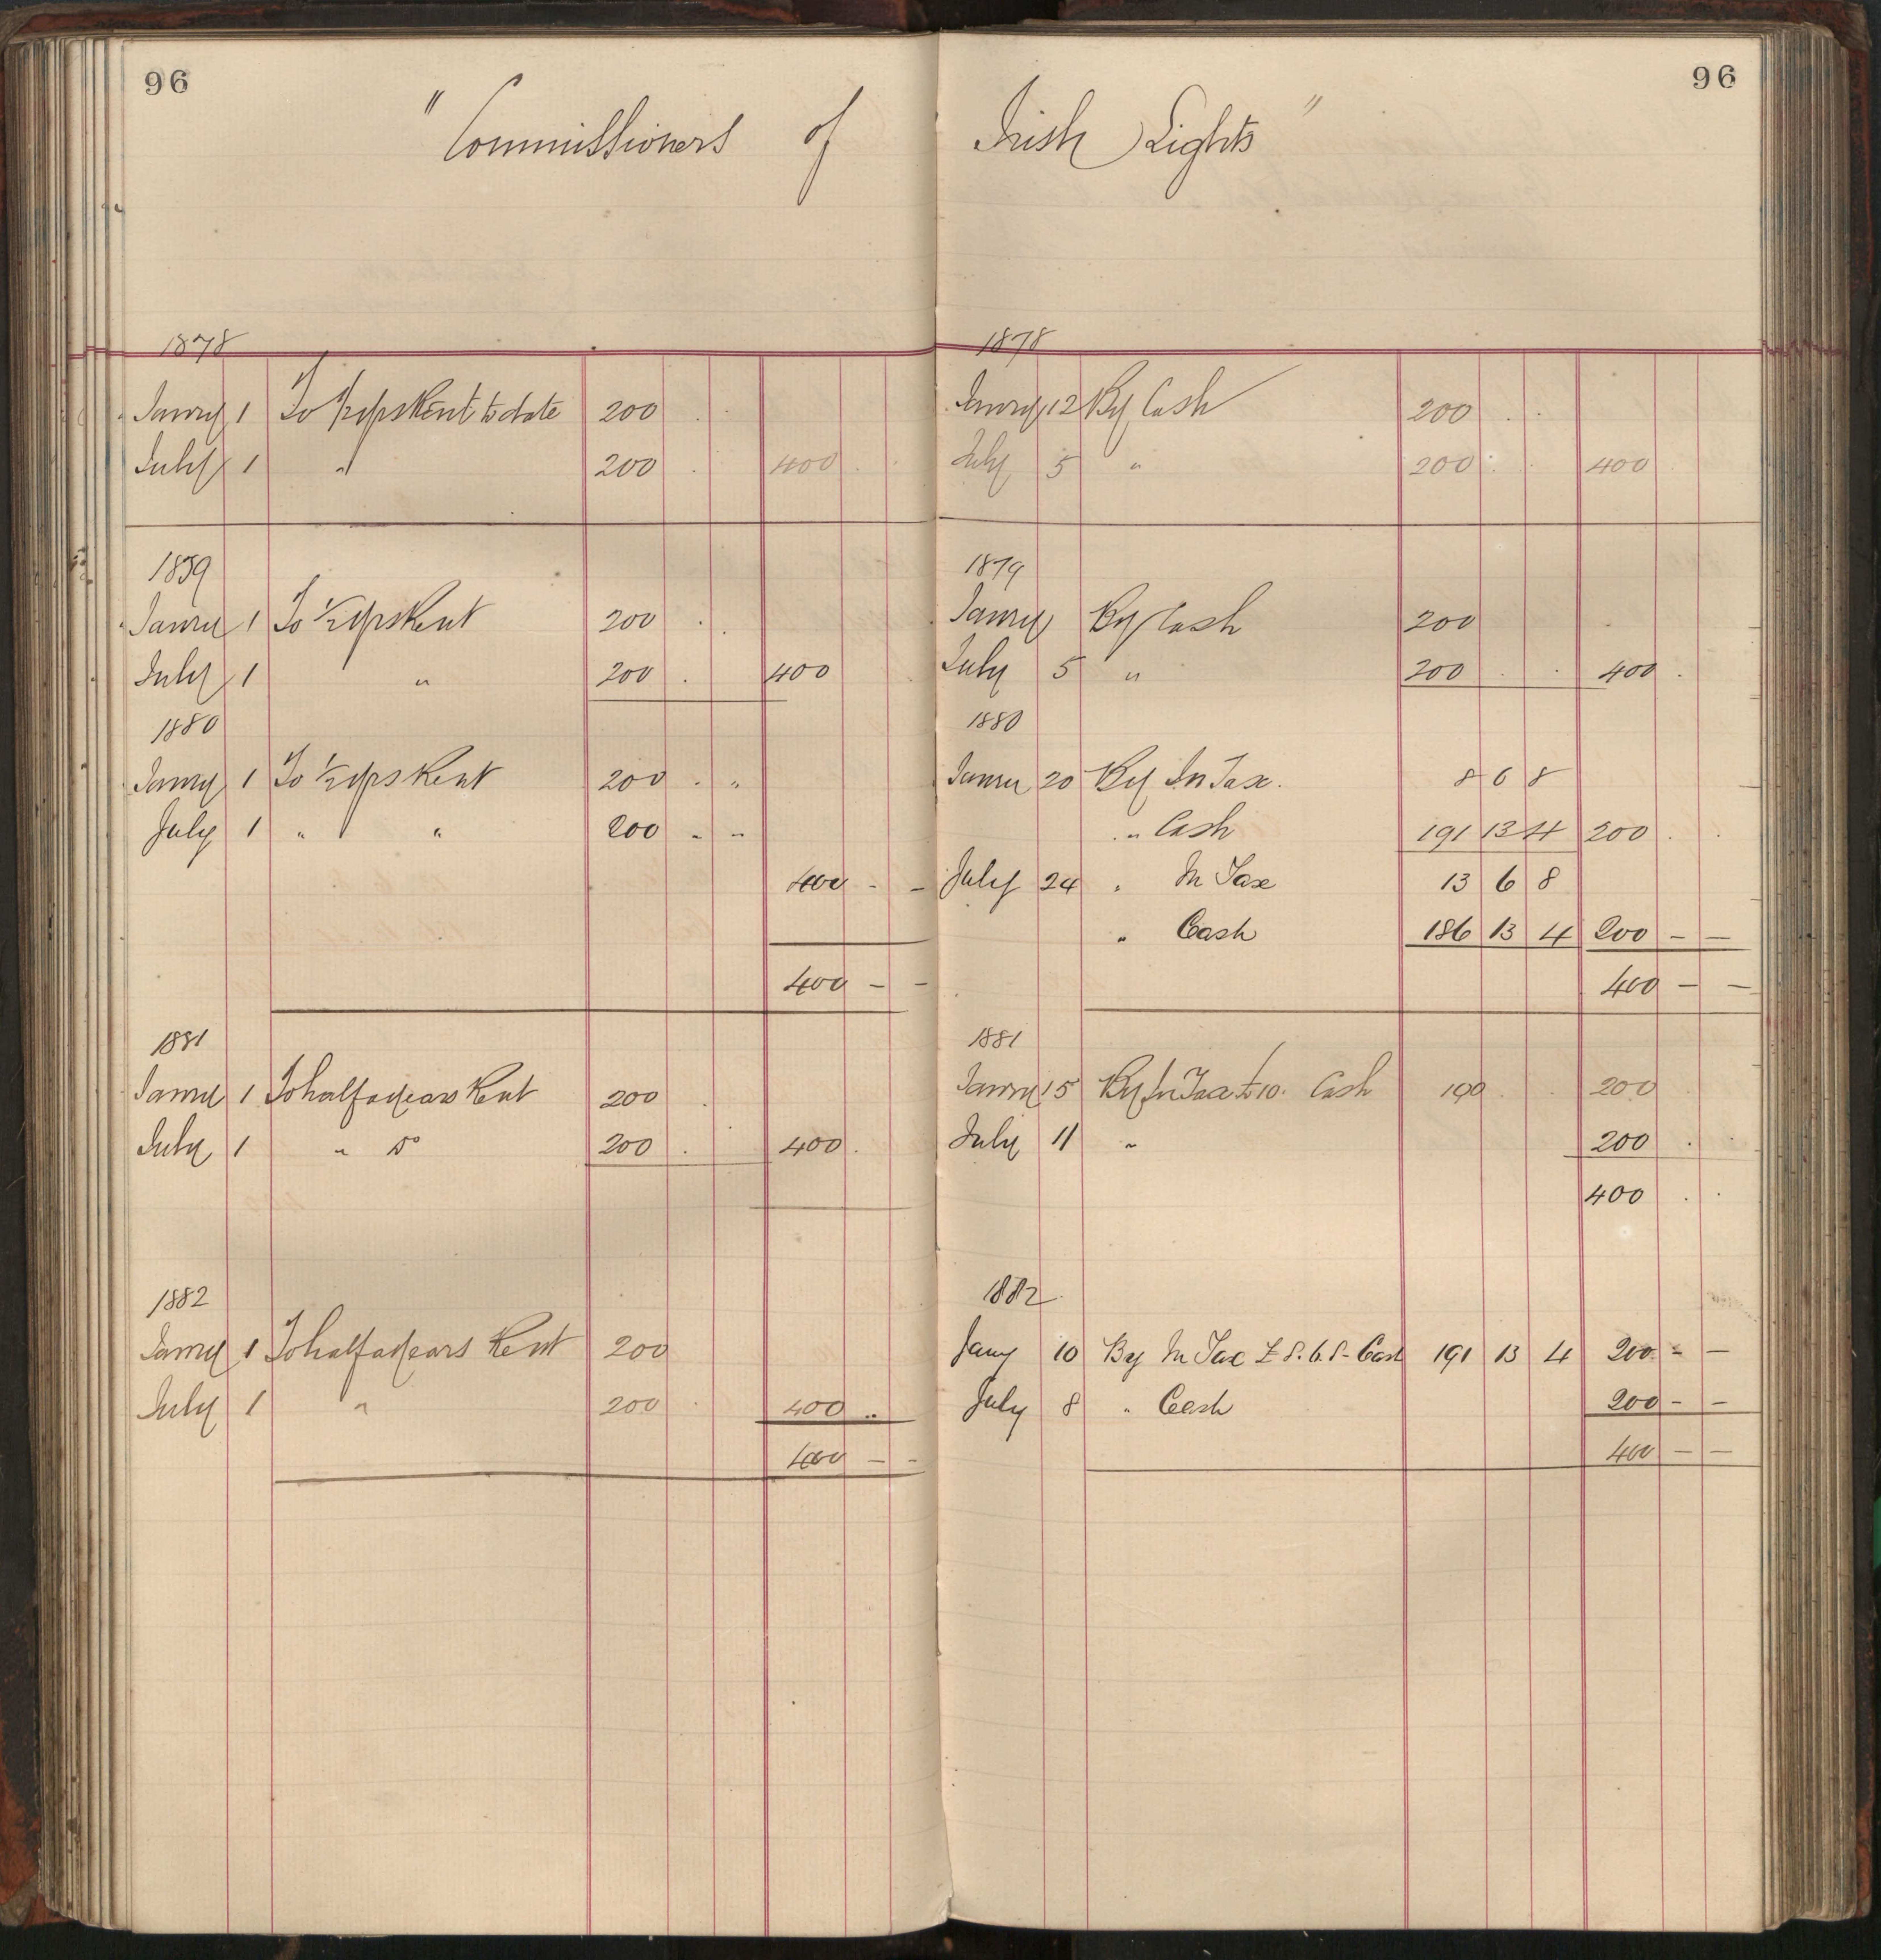 96
96
" Commissioners of Irish Lights "
1878
Janry 1 To ½ yrs Rent to date 200 . .
July 1 " 200 . 400 . .
1879
Janry 1 To ½ yrs Rent 200 . .
July 1 " 200 . 400
1880
Janry 1 To ½ yrs Rent 200 . "
July 1 " " 200 - -
400 - -
400 - -
1881
Janry 1 To half a years Rent 200 .
July 1 " Do 200 . 400 .
1882
Janry 1 To half a years Rent 200
July 1 " 200 . 400 ..
400 - -
1878
Janry 12 By Cash 200 . .
July 5 " 200 . . 400 .
1879
Janry By Cash 200
July 5 " 200 . . 400 .
1880
Janry 20 By In Tax. 8 6 8
" Cash 191 13 4 200 . .
July 24 " In Tax 13 6 8
" Cash 186 13 4 200 - -
400 - -
1881
Janry 15 By In Tax £10. Cash 190 . . 200 .
July 11 " 200 . .
400 . .
1882
Jany 10 By In Tax £8.6.8- Cash 191 13 4 200 - -
July 8 " Cash 200 - -
400 - -